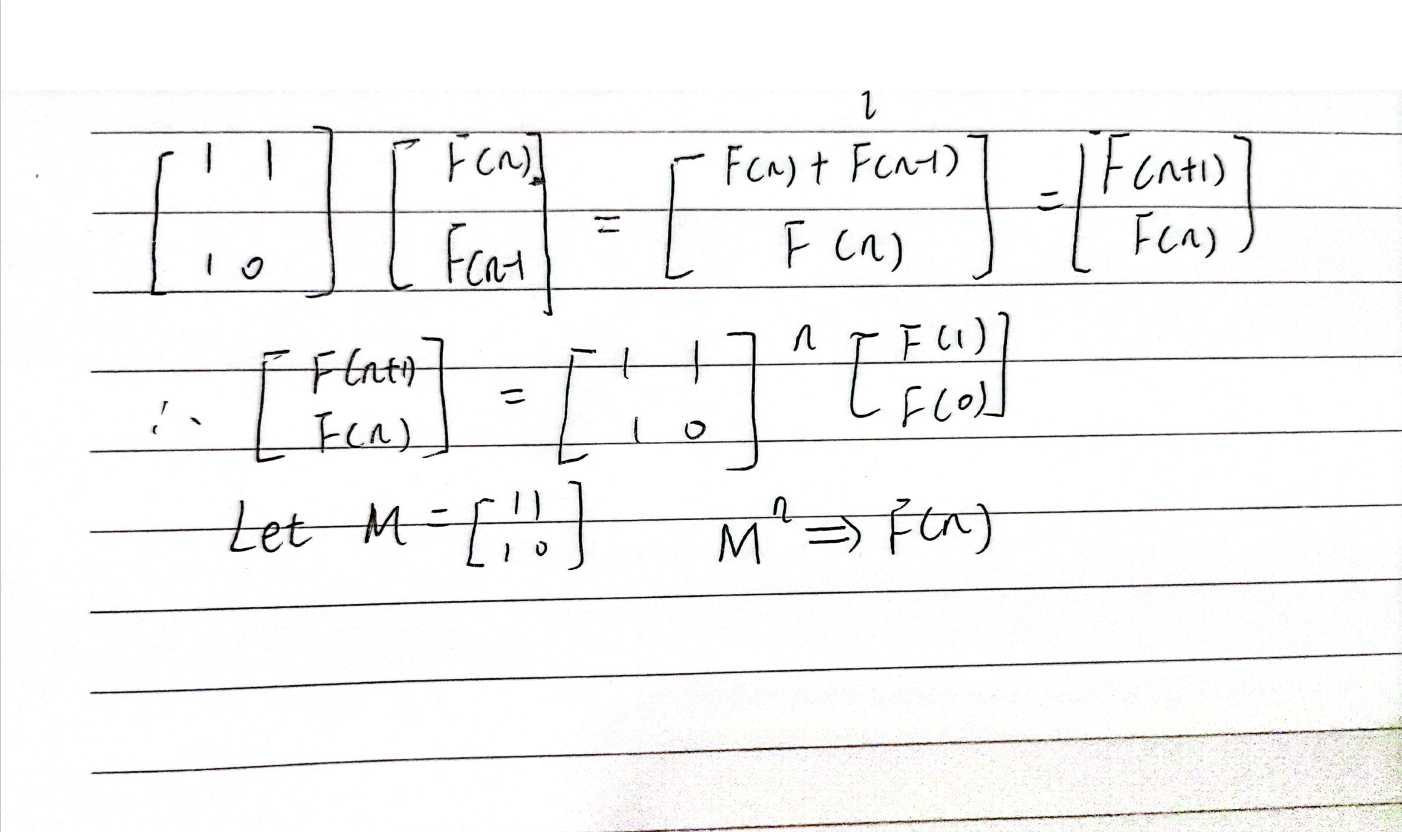 [1 1; 1 0] [F(n); F(n-1] = [F(n) + F(n-1); F(n)] = [F(n+1); F(n)]
∴ [F(n+1); F(n)] = [1 1; 1 0]^n [F(1); F(0)]
Let M = [1 1; 1 0] M^n ⇒ F(n)